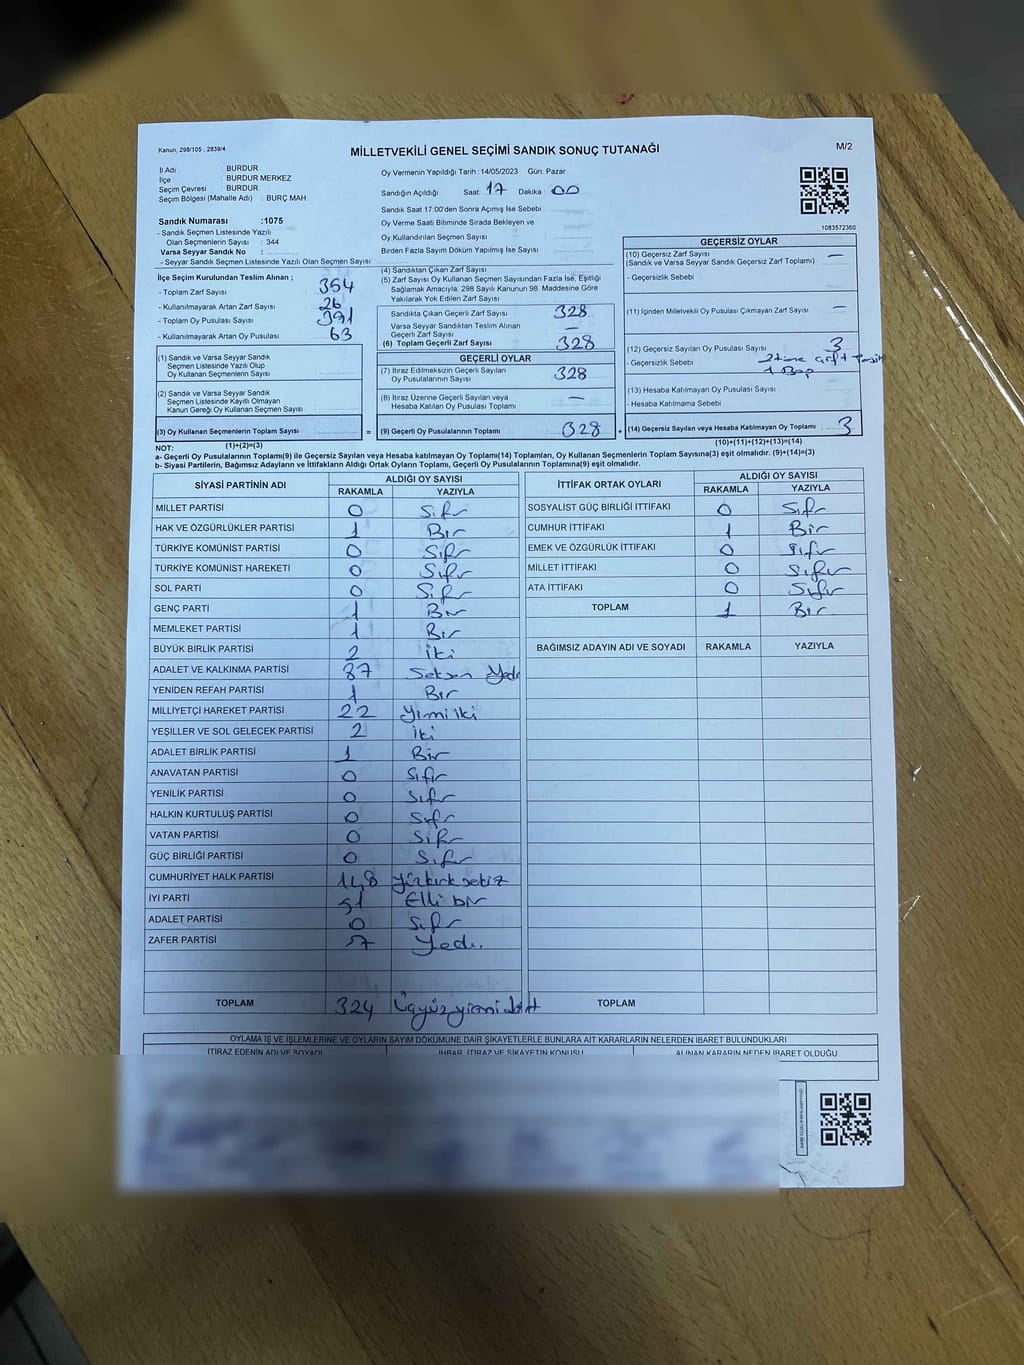 Kanun, 298/105 , 2839/4
MİLLETVEKİLİ GENEL SEÇİMİ SANDIK SONUÇ TUTANAĞI
M/2
İl Adı : BURDUR
İlçe : BURDUR MERKEZ
Seçim Çevresi : BURDUR
Seçim Bölgesi (Mahalle Adı) : BURÇ MAH
Sandık Numarası :1075
- Sandık Seçmen Listesinde Yazılı
Olan Seçmenlerin Sayısı : 344
Varsa Seyyar Sandık No :
- Seyyar Sandık Seçmen Listesinde Yazılı Olan Seçmen Sayısı:
Oy Vermenin Yapıldığı Tarih :14/05/2023 Gün: Pazar
Sandığın Açıldığı Saat 17 Dakika : 00
Sandık Saat 17:00'den Sonra Açımış İse Sebebi :
Oy Verme Saati Bitiminde Sırada Bekleyen ve
Oy Kullandırılan Seçmen Sayısı :
Birden Fazla Sayım Döküm Yapılmış İse Sayısı :
1083572360
İlçe Seçim Kurulundan Teslim Alınan ;
- Toplam Zarf Sayısı : 354
- Kullanılmayarak Artan Zarf Sayısı : 26
- Toplam Oy Pusulası Sayısı : 391
- Kullanılmayarak Artan Oy Pusulası : 63
(1) Sandık ve Varsa Seyyar Sandık
Seçmen Listesinde Yazılı Olup
Oy Kullanan Seçmen Sayısı
(2) Sandık ve Varsa Seyyar Sandık
Seçmen Listesinde Kayıtlı Olmayan
Kanun Gereği Oy Kullanan Seçmen Sayısı
(3) Oy Kullanan Seçmenlerin Toplam Sayısı :
(1)+(2)=(3)
(4) Sandıktan Çıkan Zarf Sayısı
(5) Zarf Sayısı Oy Kullanan Seçmen Sayısından Fazla İse, Eşitliği
Sağlamak Amacıyla, 298 Sayılı Kanunun 98. Maddesine Göre
Yakılarak Yok Edilen Zarf Sayısı
Sandıkta Çıkan Geçerli Zarf Sayısı 328
Varsa Seyyar Sandıktan Teslim Alınan
Geçerli Zarf Sayısı —
(6) Toplam Geçerli Zarf Sayısı 328
GEÇERLİ OYLAR
(7) İtiraz Edilmeksizin Geçerli Sayılan
Oy Pusulalarının Sayısı 328
(8) İtiraz Üzerine Geçerli Sayılan veya
Hesaba Katılan Oy Pusulası Toplamı —
= (9) Geçerli Oy Pusulalarının Toplamı 328 +
GEÇERSİZ OYLAR
(10) Geçersiz Zarf Sayısı —
(Sandık ve Varsa Seyyar Sandık Geçersiz Zarf Toplamı)
- Geçersizlik Sebebi :
(11) İçinden Milletvekili Oy Pusulası Çıkmayan Zarf Sayısı —
(12) Geçersiz Sayılan Oy Pusulası Sayısı 3
- Geçersizlik Sebebi
(13) Hesaba Katılmayan Oy Pusulası Sayısı
- Hesaba Katılmama Sebebi
(14) Geçersiz Sayılan veya Hesaba Katılmayan Oy Toplamı 3
(10)+(11)+(12)+(13)=(14)
NOT:
a- Geçerli Oy Pusulalarının Toplamı(9) ile Geçersiz Sayılan veya Hesaba katılmayan Oy Toplamı(14) Toplamları, Oy Kullanan Seçmenlerin Toplam Sayısına(3) eşit olmalıdır. (9)+(14)=(3)
b- Siyasi Partilerin, Bağımsız Adayların ve İttifakların Aldığı Ortak Oyların Toplamı, Geçerli Oy Pusulalarının Toplamına(9) eşit olmalıdır.
SİYASİ PARTİNİN ADI ALDIĞI OY SAYISI
RAKAMLA YAZIYLA
MİLLET PARTİSİ 0 Sıfır
HAK VE ÖZGÜRLÜKLER PARTİSİ 1 Bir
TÜRKİYE KOMÜNİST PARTİSİ 0 Sıfır
TÜRKİYE KOMÜNİST HAREKETİ 0 Sıfır
SOL PARTİ 0 Sıfır
GENÇ PARTİ 1 Bir
MEMLEKET PARTİSİ 1 Bir
BÜYÜK BİRLİK PARTİSİ 2 iki
ADALET VE KALKINMA PARTİSİ 87 Seksen Yedi
YENİDEN REFAH PARTİSİ 1 Bir
MİLLİYETÇİ HAREKET PARTİSİ 22 Yirmi iki
YEŞİLLER VE SOL GELECEK PARTİSİ 2 iki
ADALET BİRLİK PARTİSİ 1 Bir
ANAVATAN PARTİSİ 0 Sıfır
YENİLİK PARTİSİ 0 Sıfır
HALKIN KURTULUŞ PARTİSİ 0 Sıfır
VATAN PARTİSİ 0 Sıfır
GÜÇ BİRLİĞİ PARTİSİ 0 Sıfır
CUMHURİYET HALK PARTİSİ 148 Yüzkırk sekiz
İYİ PARTİ 51 Elli bir
ADALET PARTİSİ 0 Sıfır
ZAFER PARTİSİ 7 Yedi
TOPLAM 324 Üçyüz yirmi dört
İTTİFAK ORTAK OYLARI ALDIĞI OY SAYISI
RAKAMLA YAZIYLA
SOSYALİST GÜÇ BİRLİĞİ İTTİFAKI 0 Sıfır
CUMHUR İTTİFAKI 1 Bir
EMEK VE ÖZGÜRLÜK İTTİFAKI 0 Sıfır
MİLLET İTTİFAKI 0 Sıfır
ATA İTTİFAKI 0 Sıfır
TOPLAM 1 Bir
BAĞIMSIZ ADAYIN ADI VE SOYADI RAKAMLA YAZIYLA
TOPLAM
OYLAMA İŞ VE İŞLEMLERİNE VE OYLARIN SAYIM DÖKÜMÜNE DAİR ŞİKAYETLERLE BUNLARA AİT KARARLARIN NELERDEN İBARET BULUNDUKLARI
İTİRAZ EDENİN ADI VE SOYADI İHBAR, İTİRAZ VE ŞİKAYETİN KONUSU ALINAN KARARIN NEDEN İBARET OLDUĞU